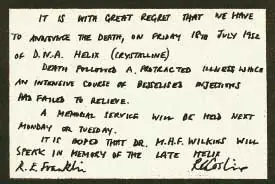 IT IS WITH GREAT REGRET THAT WE HAVE
TO ANNOUNCE THE DEATH, ON FRIDAY 18TH JULY 1952
OF D.N.A. HELIX (CRYSTALLINE)
DEATH FOLLOWED A PROTRACTED ILLNESS WHICH
AN INTENSIVE COURSE OF BESSELISED INJECTIONS
HAD FAILED TO RELIEVE.
A MEMORIAL SERVICE WILL BE HELD NEXT
MONDAY OR TUESDAY.
IT IS HOPED THAT DR. M.H.F. WILKINS WILL
SPEAK IN MEMORY OF THE LATE HELIX
R.E. Franklin R. Gosling